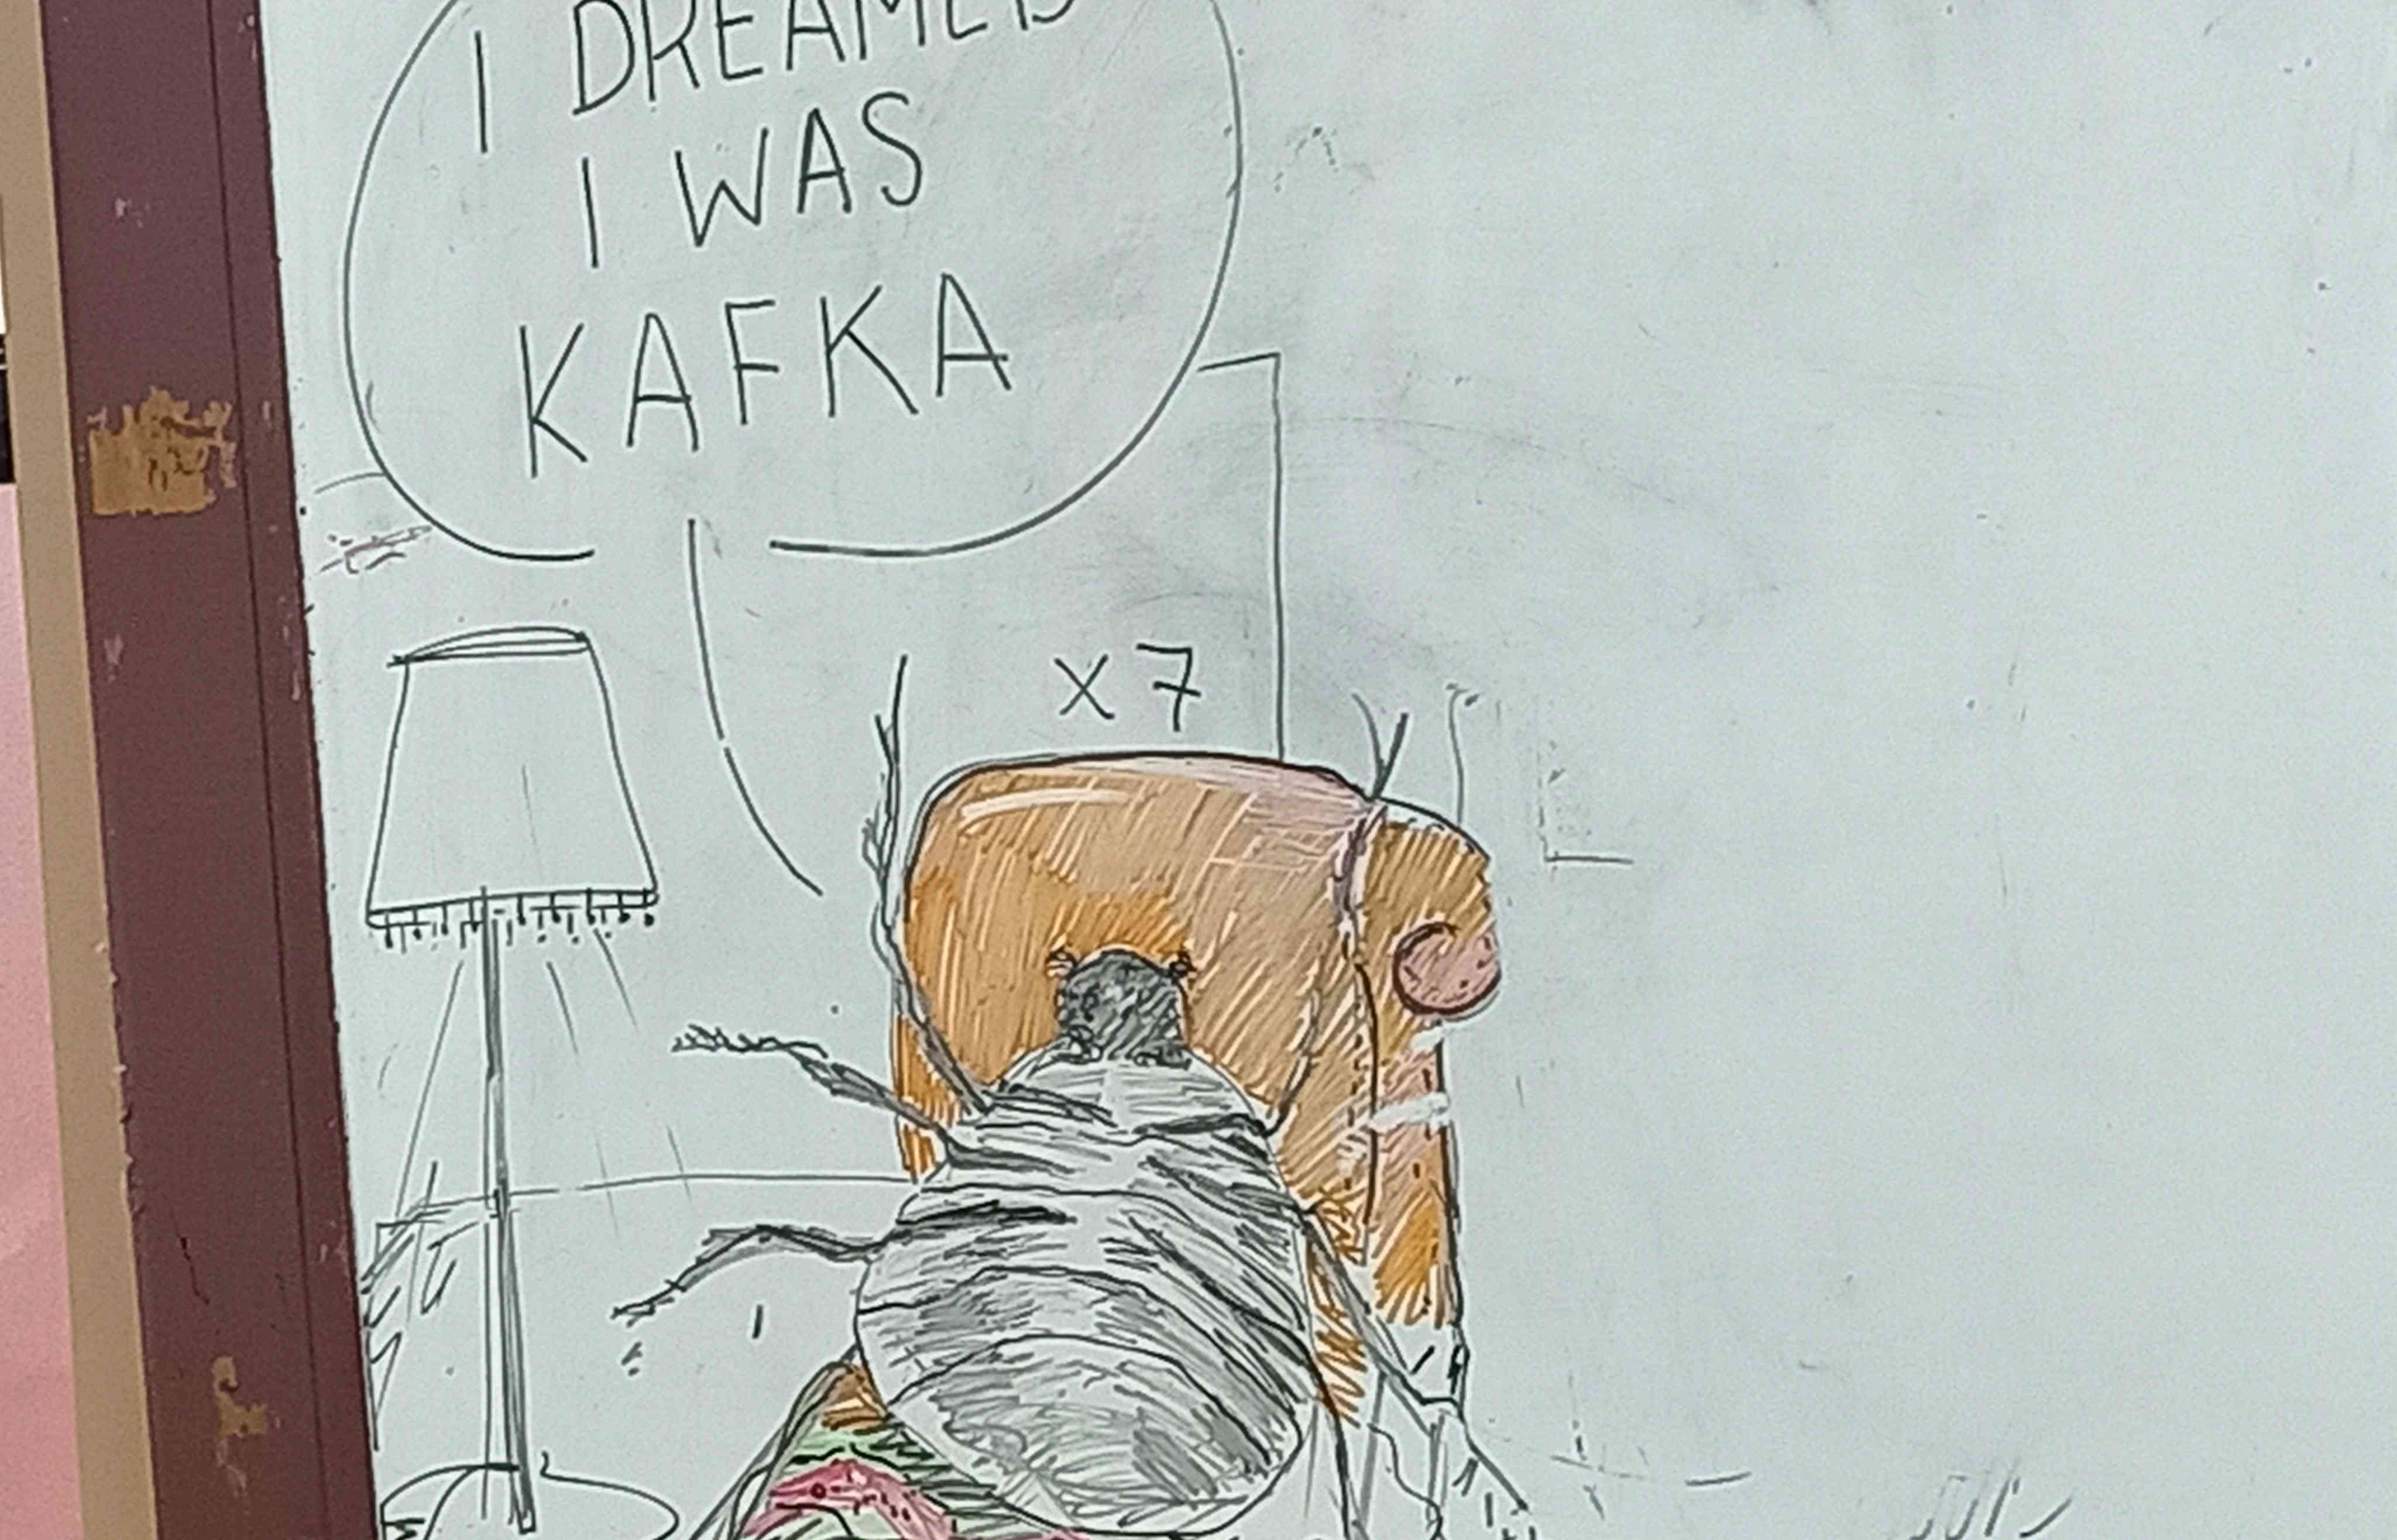 I DREAMED
I WAS
KAFKA
x7